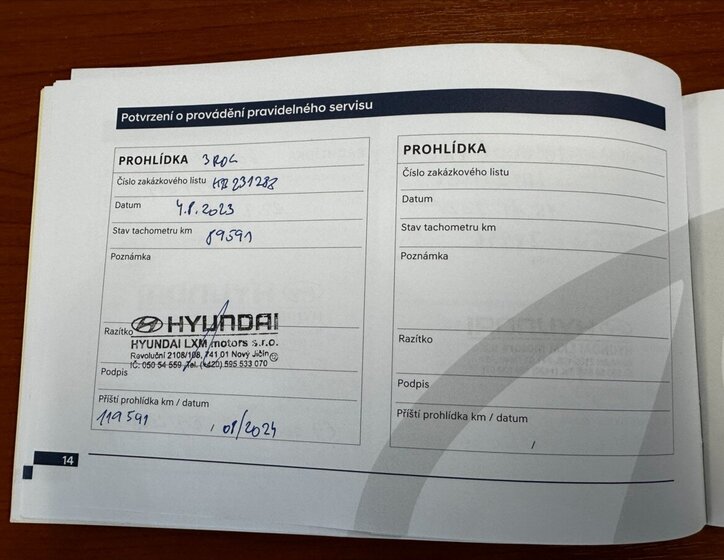 Potvrzení o provádění pravidelného servisu
PROHLÍDKA 3 ROK
Číslo zakázkového listu HB231288
Datum 4.8.2023
Stav tachometru km 89591
Poznámka
Razítko HYUNDAI
HYUNDAI LXM motors s.r.o.
Revoluční 2108/108, 741 01 Nový Jičín
IČ: 050 54 559, Tel. (+420) 595 533 070
Podpis
Příští prohlídka km / datum
119591 , 08/2024
PROHLÍDKA
Číslo zakázkového listu
Datum
Stav tachometru km
Poznámka
Razítko
Podpis
Příští prohlídka km / datum
/
14